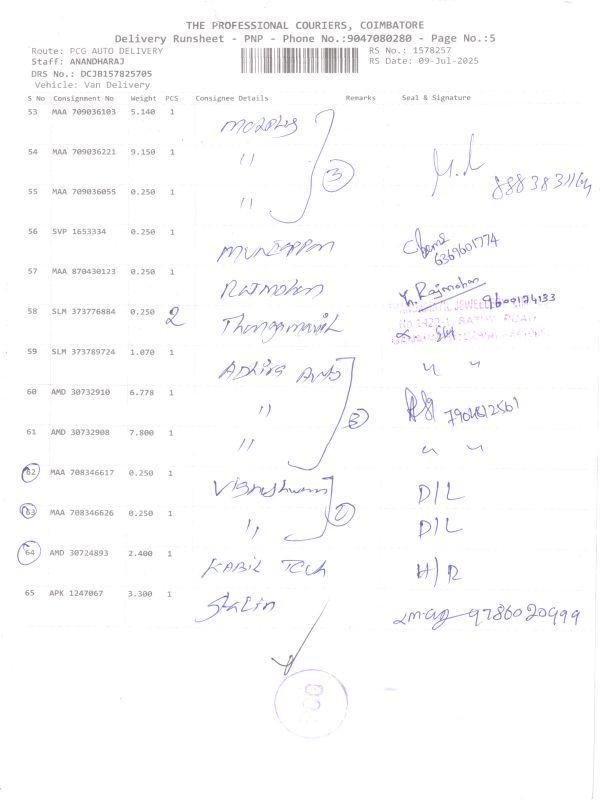 THE PROFESSIONAL COURIERS, COIMBATORE
Delivery Runsheet - PNP - Phone No.:9047080280 - Page No.:5
Route: PCG AUTO DELIVERY
RS No.: 1578257
Staff: ANANDHARAJ
RS Date: 09-Jul-2025
DRS No.: DCJB157825705
Vehicle: Van Delivery
S No Consignment No Weight PCS Consignee Details Remarks Seal & Signature
53 MAA 709036103 5.140 1
54 MAA 709036221 9.150 1 "
3
55 MAA 709036055 0.250 1 "
56 SVP 1653334 0.250 1
6369601774
57 MAA 870430123 0.250 1 Rajmohan K. Rajmohan
9600174133
58 SLM 373776884 0.250 2 Thangamavil
59 SLM 373789724 1.070 1 Auto " "
60 AMD 30732910 6.778 1 " 7904812561
3
61 AMD 30732908 7.800 1 " " "
62 MAA 708346617 0.250 1 D/L
63 MAA 708346626 0.250 1 " D/L
64 AMD 30724893 2.400 1 KABIL Tech H/R
65 APK 1247067 3.300 1 Stalin 9786020999